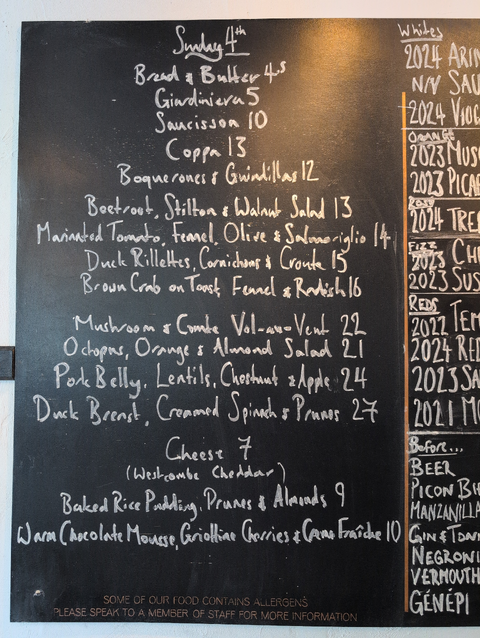 Sunday 4th
Bread & Butter 4.5
Giardiniera 5
Saucisson 10
Coppa 13
Boquerones & Guindillas 12
Beetroot, Stilton & Walnut Salad 13
Marinated Tomato, Fennel, Olive & Salmoriglio 14
Duck Rillettes, Cornichons & Crouta 15
Brown Crab on Toast, Fennel & Radish 16
Mushroom & Comte Vol-au-Vent 22
Octopus, Orange & Almond Salad 21
Pork Belly, Lentils, Chestnut & Apple 24
Duck Breast, Creamed Spinach & Prunes 27
Cheese 7
(Westcombe Cheddar)
Baked Rice Pudding, Prunes & Almonds 9
Warm Chocolate Mousse, Griottine Cherries & Creme Fraîche 10
SOME OF OUR FOOD CONTAINS ALLERGENS
PLEASE SPEAK TO A MEMBER OF STAFF FOR MORE INFORMATION
Whites
2024
N/V
2024
Orange
2023
2023
Rosé
2024
Fizz
2023
REDS
2022
2024
2023
2021
Before...
BEER
PICON
MANZANILLA
GIN &
NEGRONI
VERMOUTH
GÉNÉPI